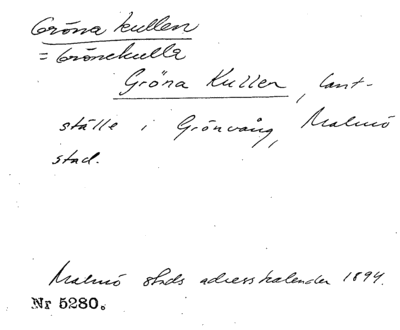 Gröna kullen
= Grönekulla
Gröna Kullen, lant-
ställe i Grönvång, Malmö
stad.
Malmö stads adresskalender 1894.
Nr 5280.